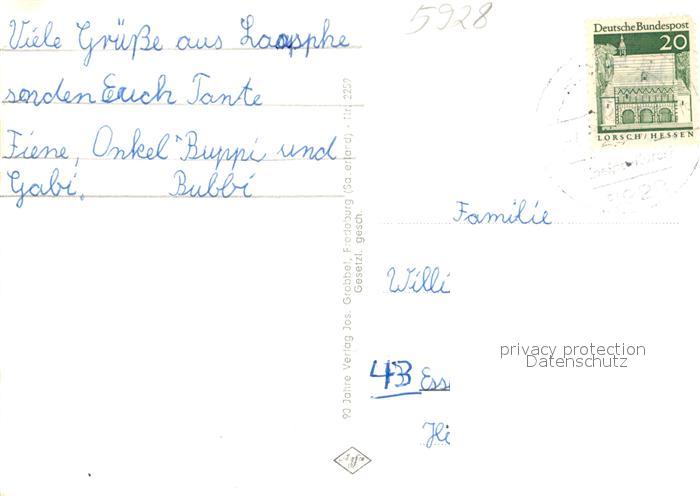 Viele Grüße aus Laasphe
senden Euch Tante
Fiene, Onkel Buppi und
Gabi. Bubbi
5928
Deutsche Bundespost
20
LORSCH/HESSEN
90 Jahre Verlag Jos. Grobbel, Fredeburg (Sauerland) · Nr. 2259
Gesetzl. gesch.
Familie
Willi
43 Ess
Hi
privacy protection
Datenschutz
Agfa